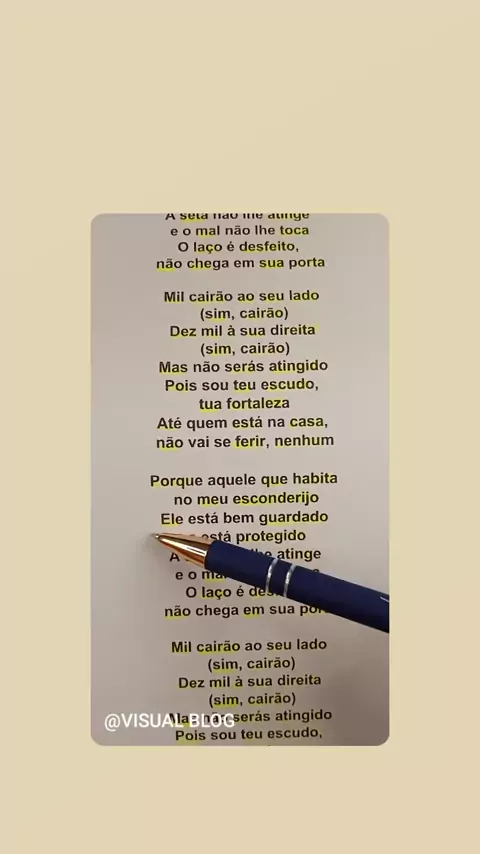 A seta não lhe atinge
e o mal não lhe toca
O laço é desfeito,
não chega em sua porta
Mil cairão ao seu lado
(sim, cairão)
Dez mil à sua direita
(sim, cairão)
Mas não serás atingido
Pois sou teu escudo,
tua fortaleza
Até quem está na casa,
não vai se ferir, nenhum
Porque aquele que habita
no meu esconderijo
Ele está bem guardado
está protegido
A atinge
e o
O laço é
não chega em sua
Mil cairão ao seu lado
(sim, cairão)
Dez mil à sua direita
(sim, cairão)
Mas não serás atingido
@VISUAL BLOG
Pois sou teu escudo,